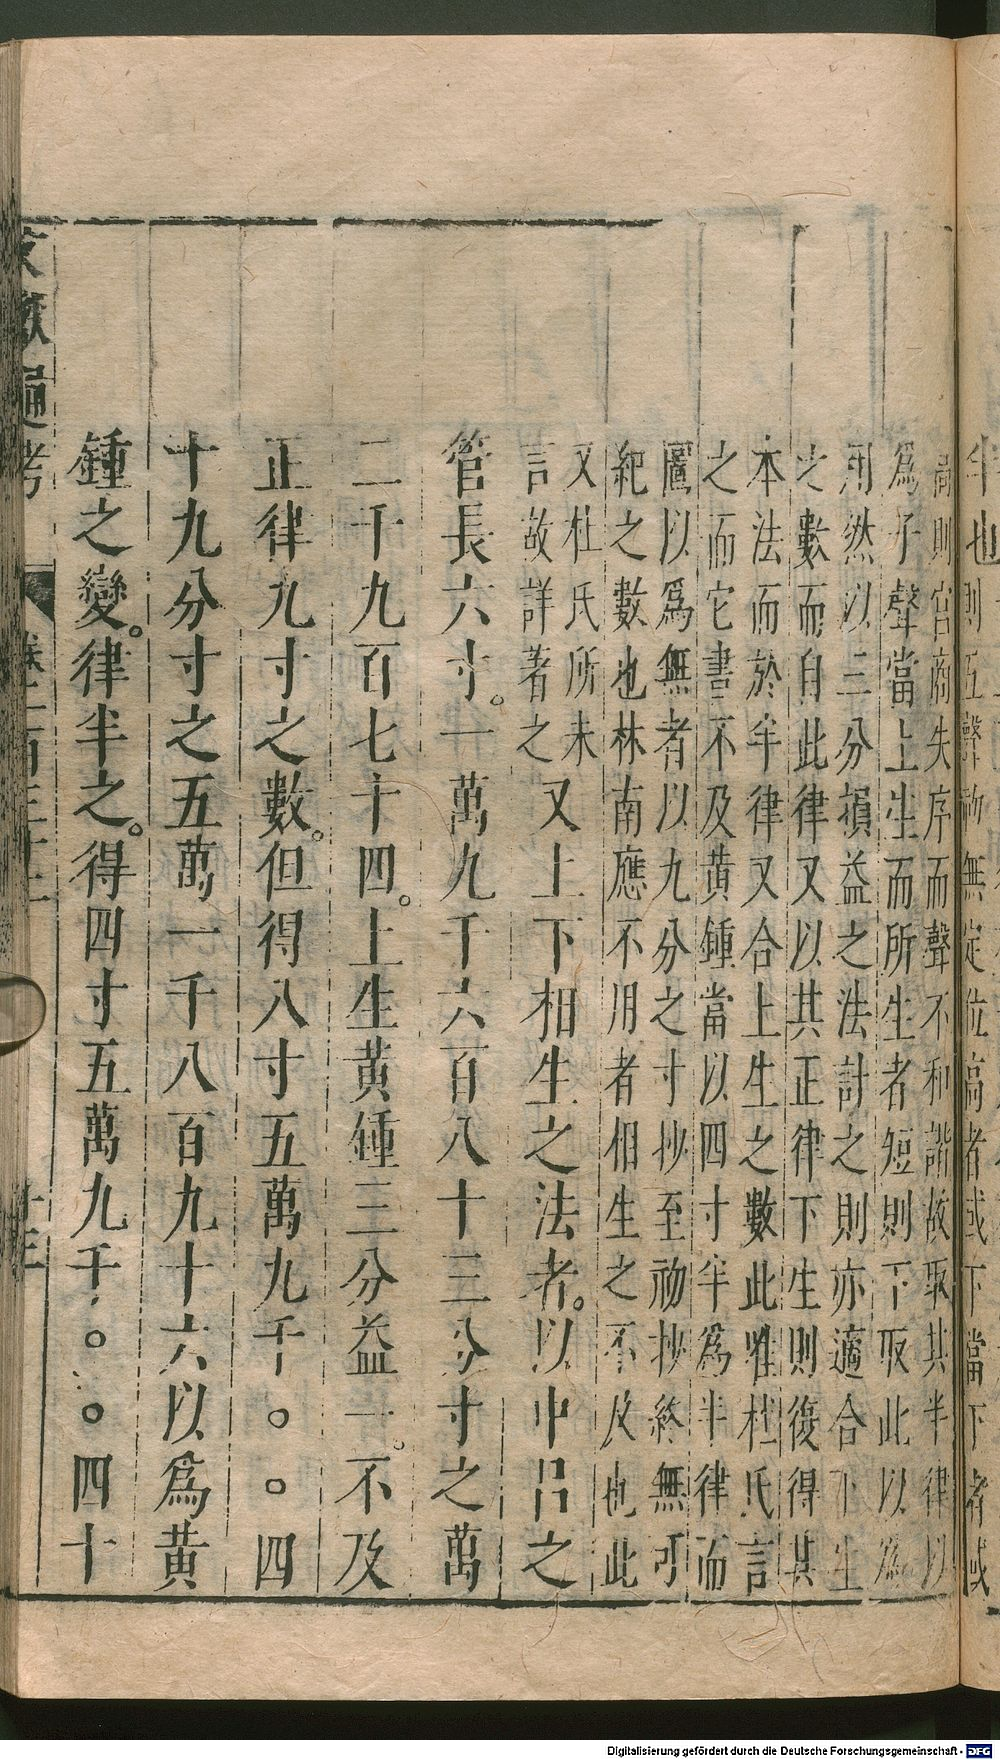 半也則五聲初無定位高者或下當下者或
高則宮商失序而聲不和諧故取其半律以
爲子聲當上生而所生者短則下取此以爲
用然以三分損益之法計之則亦適合下生
之數而自此律又以其正律下生則復得其
本法而於半律又合上生之數此唯杜氏言
之而它書不及黄鍾當以四寸半爲半律而
圖以爲無者以九分之寸抄至初抄終無可
紀之數也林南應不用者相生之不及也此
又杜氏所未
言故詳著之
又上下相生之法者。以中呂之
管長六寸。一萬九千六百八十三分寸之萬
二千九百七十四。上生黄鍾三分益一。不及
正律九寸之數。但得八寸五萬九千〇〇四
十九分寸之五萬一千八百九十六以爲黄
鍾之變。律半之。得四寸五萬九千〇〇四十
文獻通考
十三
Digitalisierung gefördert durch die Deutsche Forschungsgemeinschaft - DFG